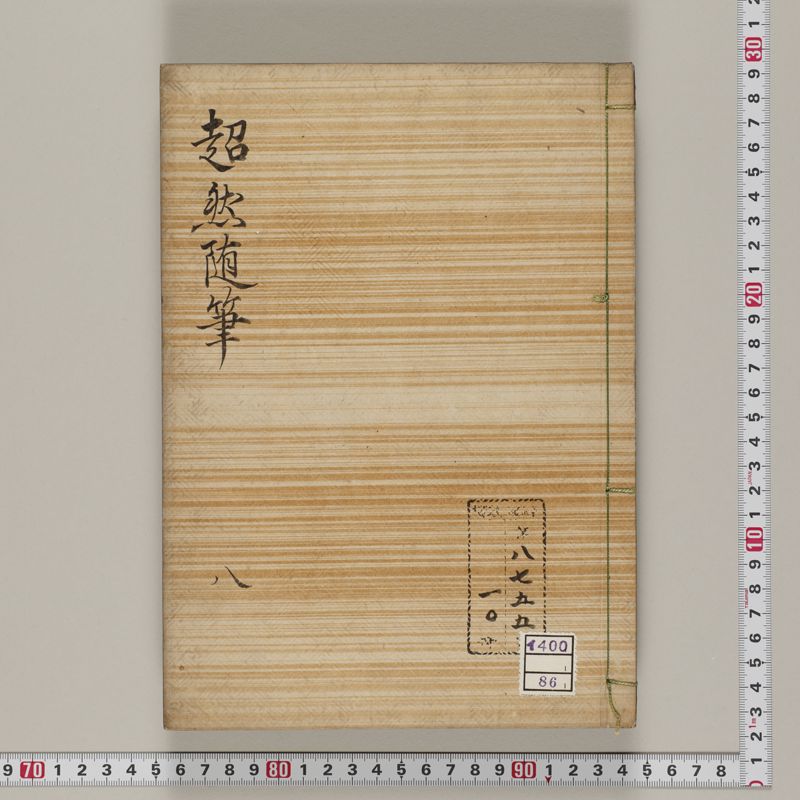 超然随筆
八
八七五五
一〇
1400
86
9 70 1 2 3 4 5 6 7 8 9 80 1 2 3 4 5 6 7 8 9 90 1 2 3 4 5 6 7 8
2 1 30 9 8 7 6 5 4 3 2 1 20 9 8 7 6 5 4 3 2 1 10 9 8 7 6 5 4 3 2 1
JAPAN
1m